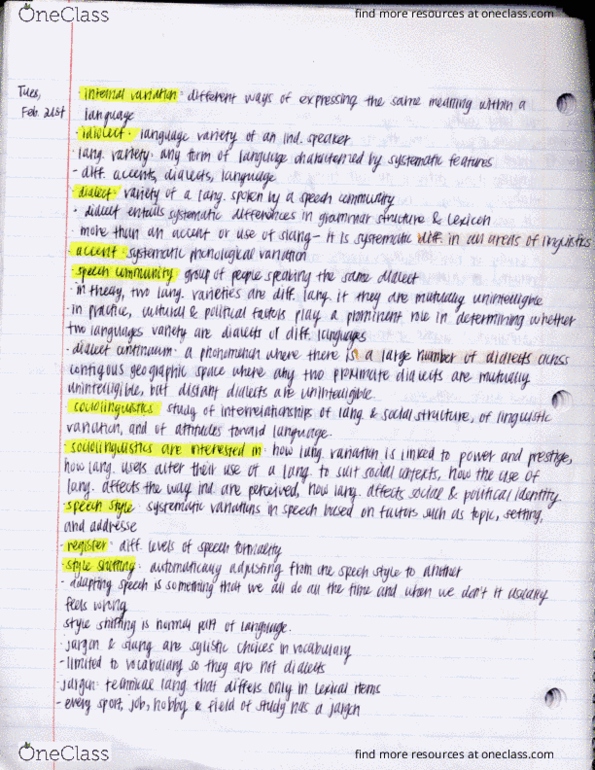 OneClass
find more resources at oneclass.com
Tues,
Feb. 21st
- internal variation: different ways of expressing the same meaning within a
language
- idiolect: language variety of an ind. speaker
- lang. variety: any form of language characterized by systematic features
- diff. accents, dialects, language
- dialect: variety of a lang. spoken by a speech community
- dialect entails systematic differences in grammar structure & lexicon
- more than an accent or use of slang - it is systematic diff. in all areas of linguistics
- accent: systematic phonological variation
- speech community: group of people speaking the same dialect
- in theory, two lang. varieties are diff. lang. if they are mutually unintelligible
- in practice, cultural & political factors play a prominent role in determining whether
two languages variety are dialects of diff. languages
- dialect continuum: a phenomenon where there is a large number of dialects across
contigous geographic space where any two proximate dialects are mutually
unintelligible, but distant dialects are unintelligible.
- sociolinguistics: study of interrelationships of lang. & social structure, of linguistic
variation, and of attitudes toward language.
- sociolinguistics are interested in: how lang. variation is linked to power and prestige,
how lang. users alter their use of a lang. to suit social contexts, how the use of
lang. affects the way ind. are perceived, how lang. affects social & political identity.
- speech style: systematic variations in speech based on factors such as topic, setting,
and addresse
- register: diff. levels of speech formality
- style shifting: automatically adjusting from one speech style to another
- adapting speech is something that we all do all the time and when we don't it
feels wrong
style shifting is normal part of language.
- jargon & slang are sylistic choices in vocabulary
- limited to vocabulary so they are not dialects
- jargon: technical lang. that differs only in lexical items
- every sport, job, hobby & field of study has a jargon
OneClass
find more resources at oneclass.com